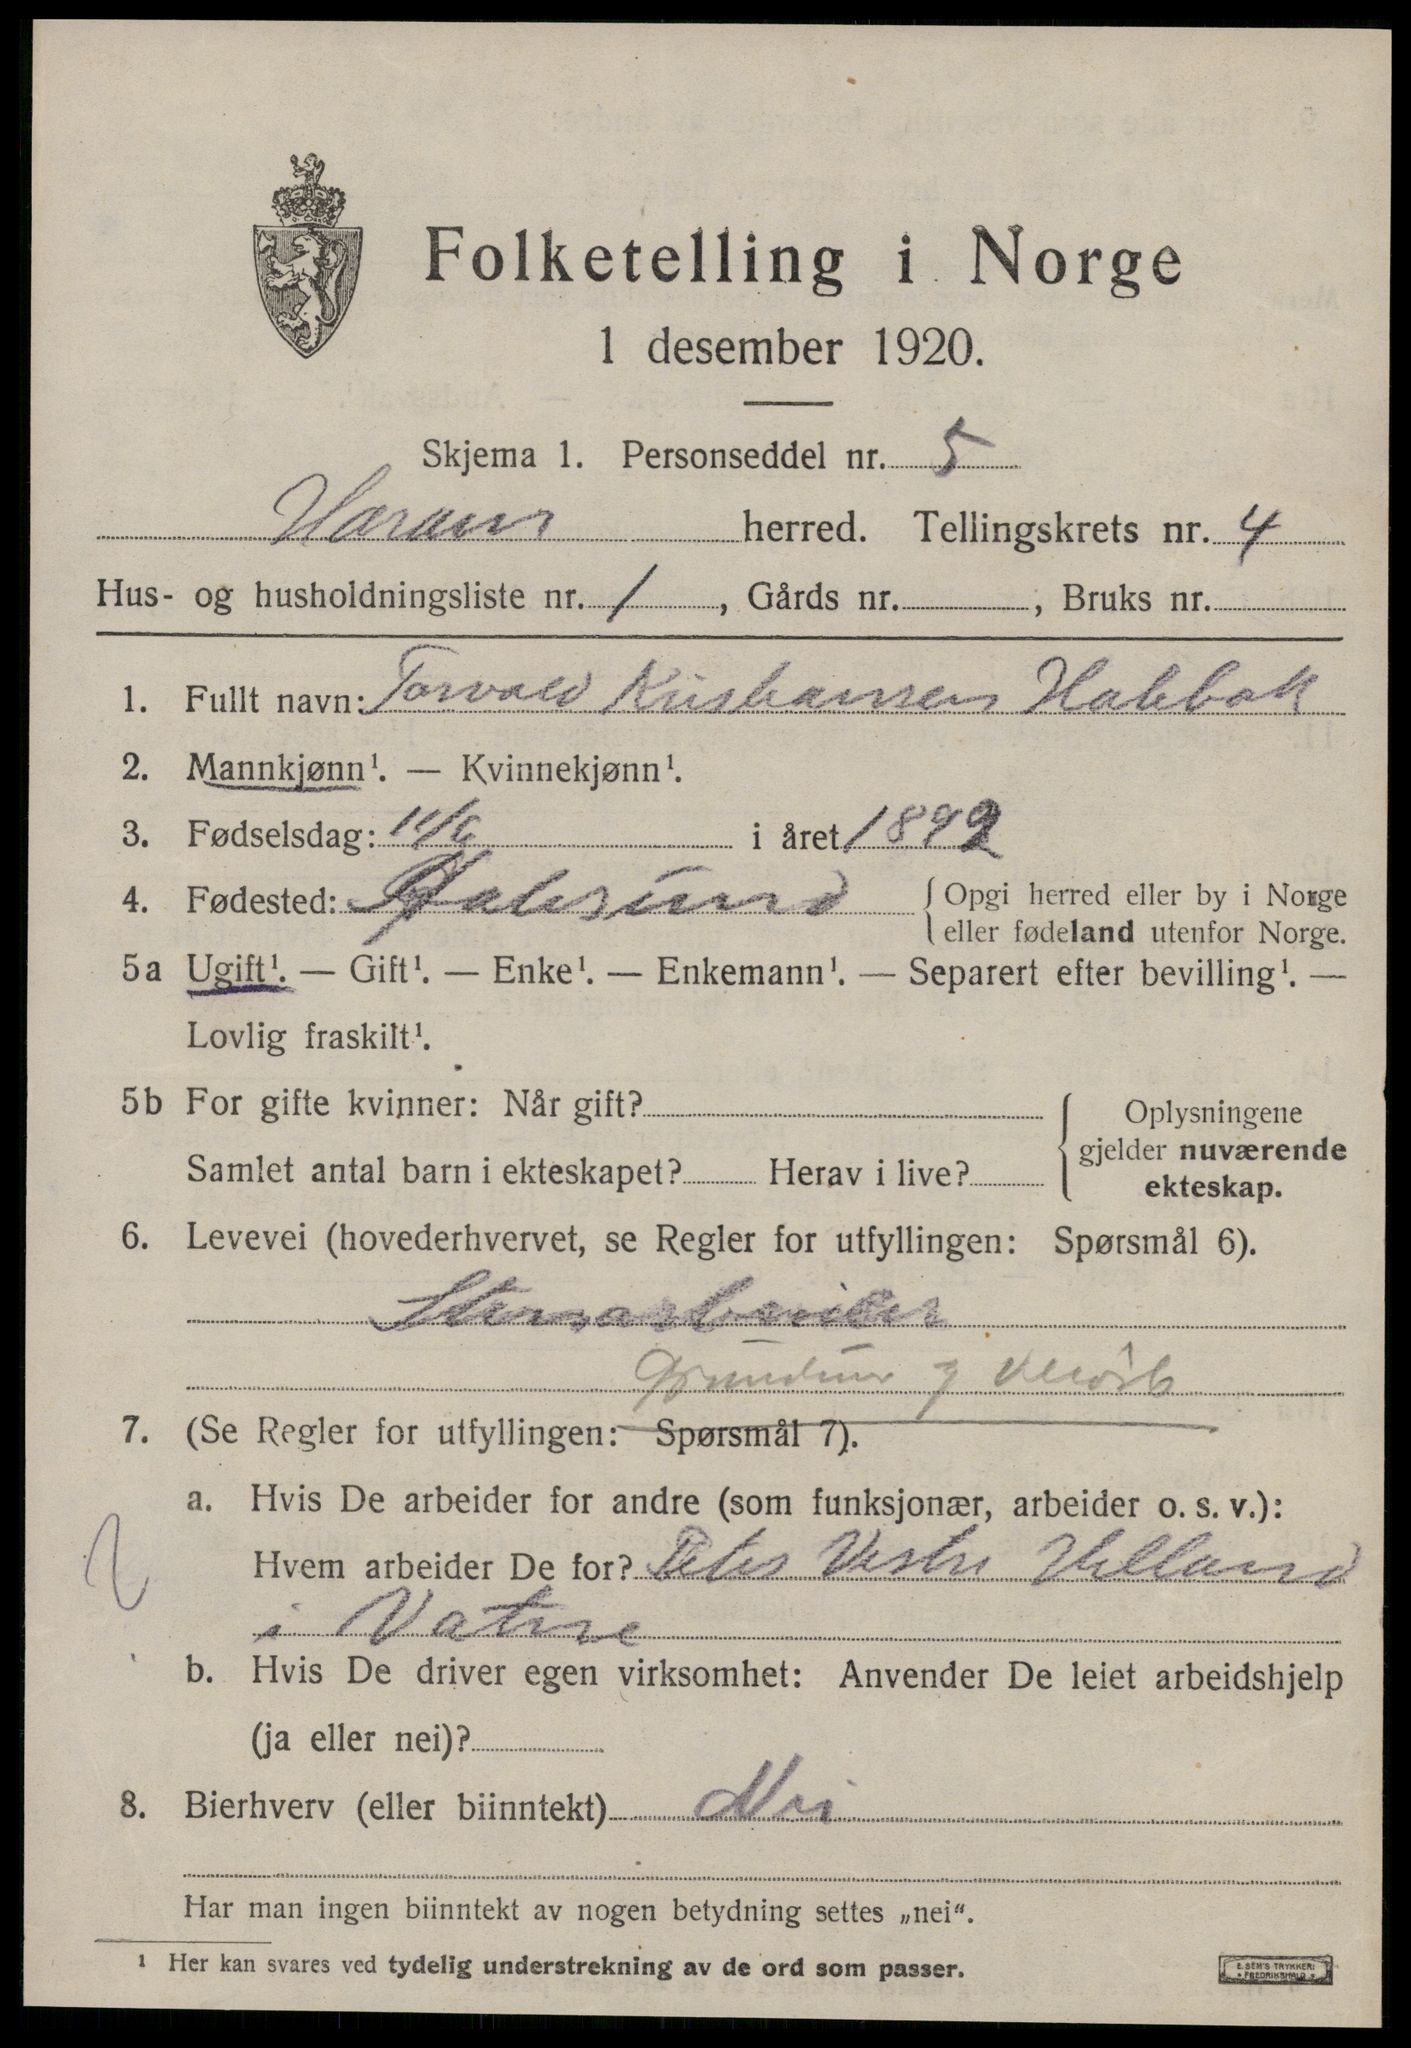 Folketelling i Norge
1 desember 1920.
Skjema 1. Personseddel nr. 5
Haram herred. Tellingskrets nr. 4
Hus- og husholdningsliste nr. 1, Gårds nr. , Bruks nr.
1. Fullt navn: Torvald Kristiansen
2. Mannkjønn¹. — Kvinnekjønn¹.
3. Fødselsdag: 11/6 i året 1892
4. Fødested: { Opgi herred eller by i Norge
eller fødeland utenfor Norge.
5a Ugift¹. — Gift¹. — Enke¹. — Enkemann¹. — Separert efter bevilling¹. —
Lovlig fraskilt¹.
5b For gifte kvinner: Når gift? { Oplysningene
gjelder nuværende
Samlet antal barn i ekteskapet? Herav i live?
ekteskap.
6. Levevei (hovederhvervet, se Regler for utfyllingen: Spørsmål 6).
Stenarbeider
7. (Se Regler for utfyllingen: Spørsmål 7).
a. Hvis De arbeider for andre (som funksjonær, arbeider o. s. v.):
Hvem arbeider De for? Peter Vestre Helland
i Vatne
b. Hvis De driver egen virksomhet: Anvender De leiet arbeidshjelp
(ja eller nei)?
8. Bierhverv (eller biinntekt) Nei
Har man ingen biinntekt av nogen betydning settes „nei“.
¹ Her kan svares ved tydelig understrekning av de ord som passer.
E. SEM'S TRYKKERI
FREDRIKSHALD